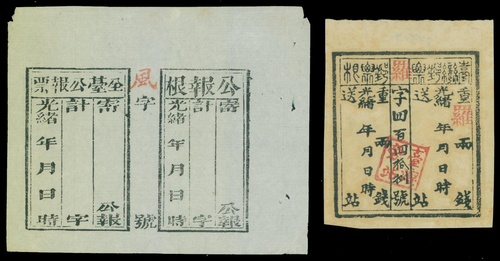 公報根
寄 公報
計 字
光緒 年 月 日 時
風字 號
全臺公報票
寄 公報
計 字
光緒 年 月 日 時
羅
重 兩 錢
光緒 年 月 日 時
送 站
羅字四百四拾捌號
重 兩 錢
光緒 年 月 日 時
送 站